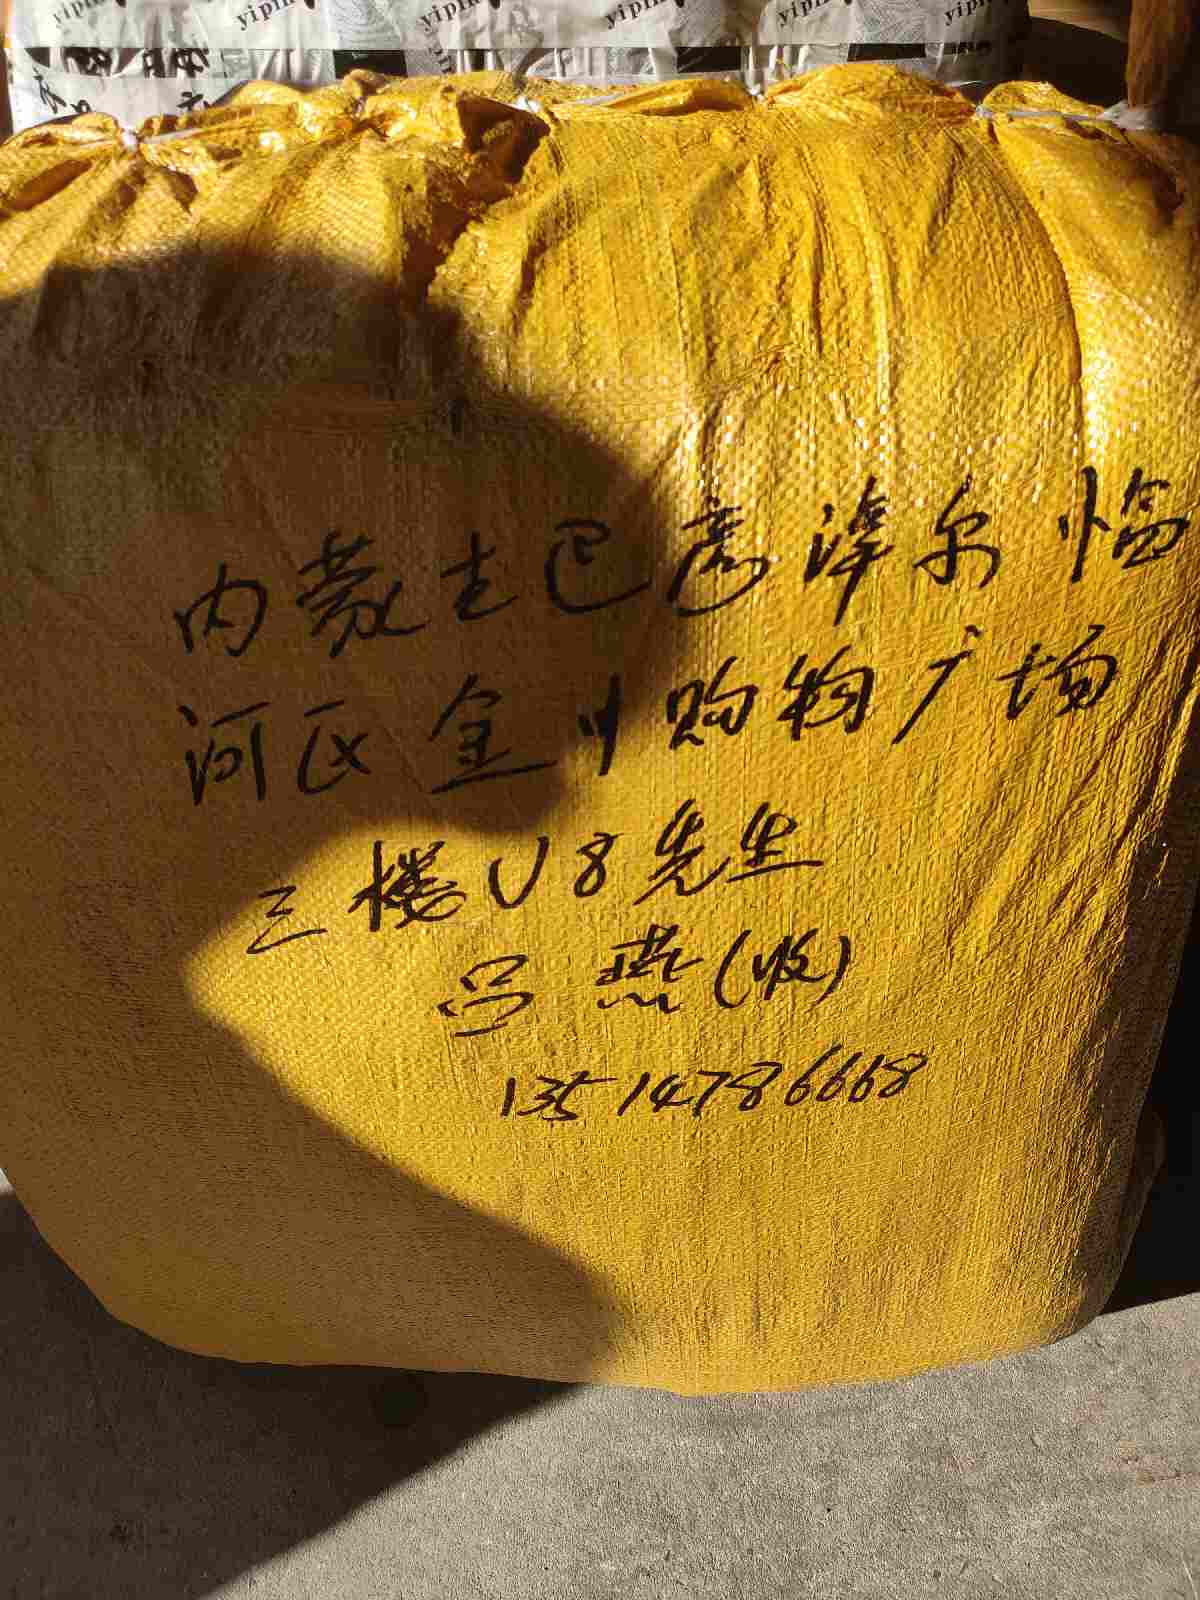 yipin
yipin
yipin
yipin
内蒙古巴彦淖尔临
河区金川购物广场
三楼U8先生
吕燕(收)
13514786668